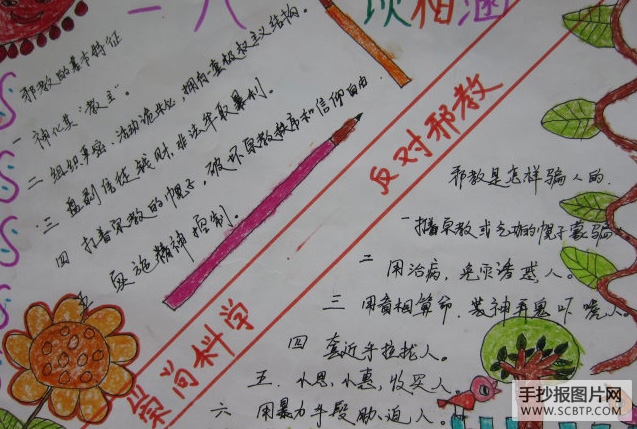 一八
邪教的基本特征
一 神化其"教主"。
二 组织严密，活动诡秘，拥有
三 盘剥信徒钱财，非法牟取暴利。
四 打着宗教的帽子，破坏宗教秩序和信仰自由
实施精神控制。
崇尚科学
反对邪教
邪教是怎样骗人的.
一 打着宗教或气功的帽子蒙骗
二 用治病，免灾诱惑人。
三 用看相算命，装神弄鬼吓唬人。
四 套近乎拉拢人。
五. 小恩，小惠，收买人。
六 用暴力手段胁迫人。
手抄报图片网
WWW.SCBTP.COM